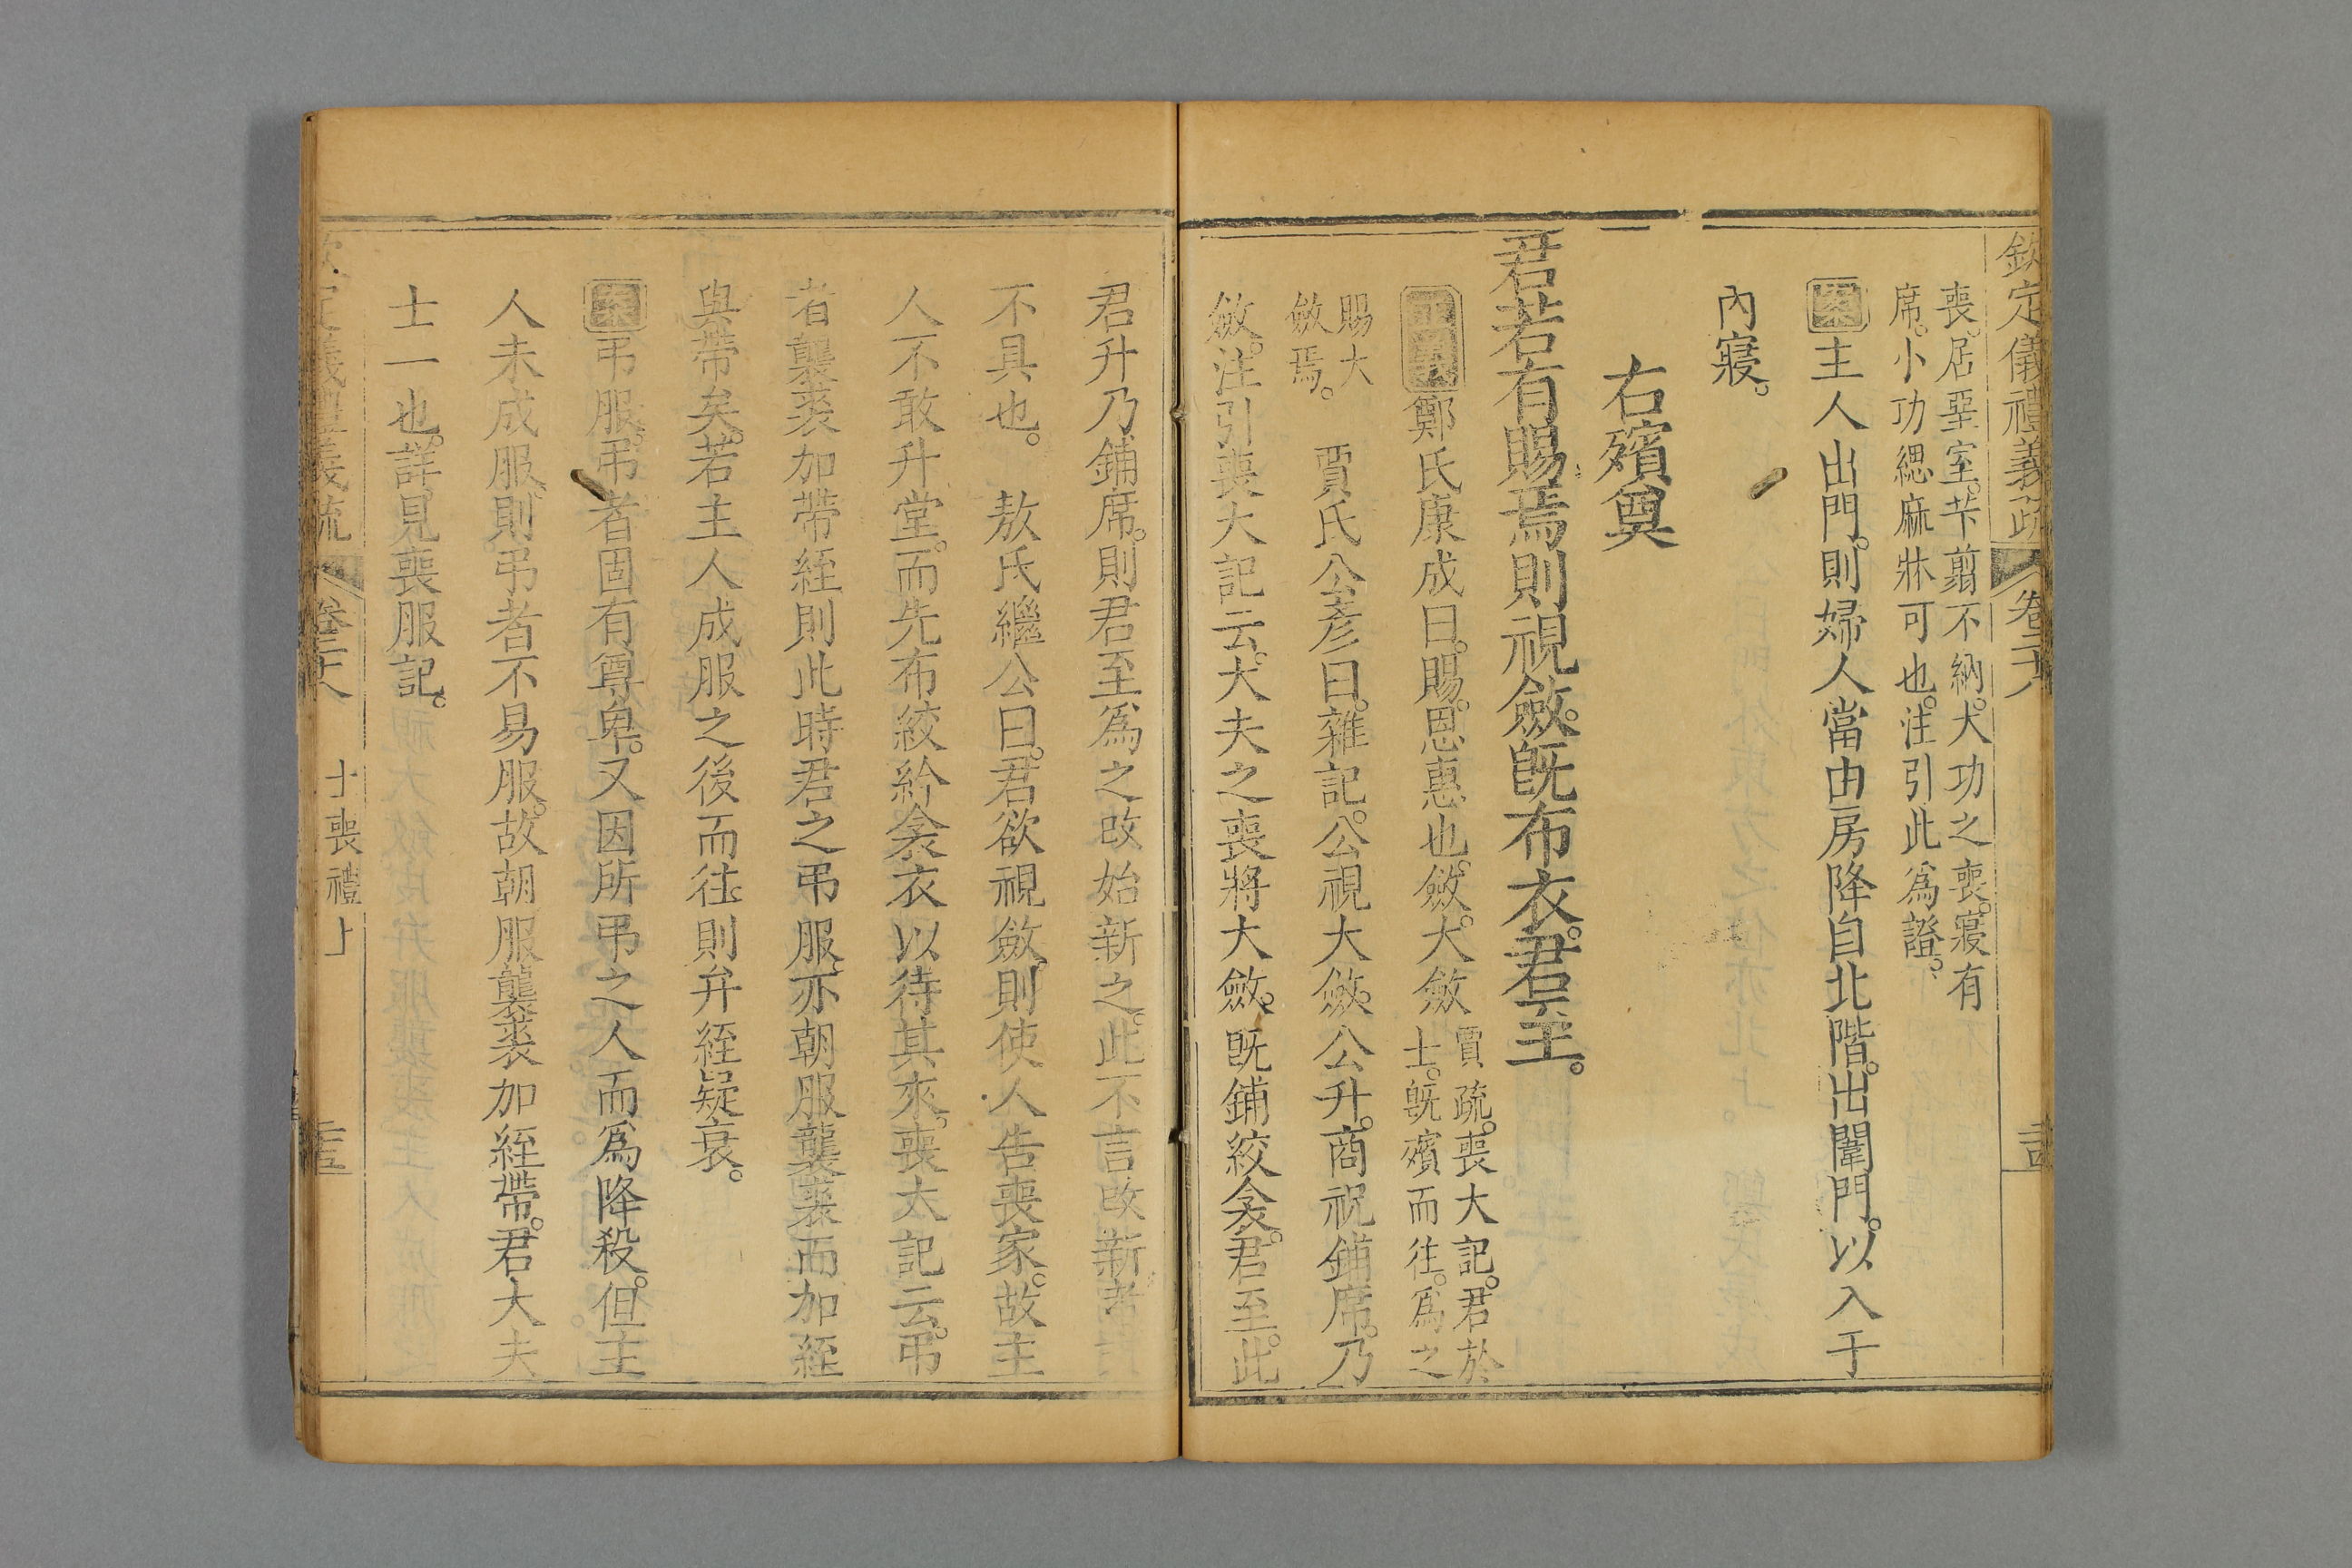 欽定儀禮義疏 卷二十八
喪。居堊室。芐翦不納。大功之喪。寢有
席。小功緦麻牀可也。注引此爲證。
案主人出門。則婦人當由房降自北階。出闈門。以入于
內寢。
右殯奠
君若有賜焉則視斂。旣布衣。君至。
正義鄭氏康成曰。賜。恩惠也。斂。大斂
賈疏。喪大記。君於
士。旣殯而往。爲之
賜大
斂焉。
賈氏公彥曰。雜記。公視大斂。公升。商祝鋪席。乃
斂。注引喪大記云。大夫之喪將大斂。旣鋪絞衾。君至。此
君升乃鋪席。則君至爲之改始新之。此不言改新者
不具也。 敖氏繼公曰。君欲視斂。則使人告喪家。故主
人不敢升堂。而先布絞紟衾衣以待其來。喪大記云。弔
者襲裘加帶絰則此時君之弔服亦朝服襲裘而加絰
與帶矣。若主人成服之後而往。則弁絰疑衰。
案弔服。弔者固有尊卑。又因所弔之人而爲降殺。但主
人未成服。則弔者不易服。故朝服襲裘加絰帶。君大夫
士一也。詳見喪服記。
卷二十八 士喪禮上